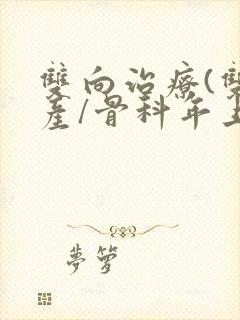 雙向治療(雙
產/骨科年上
夢籮